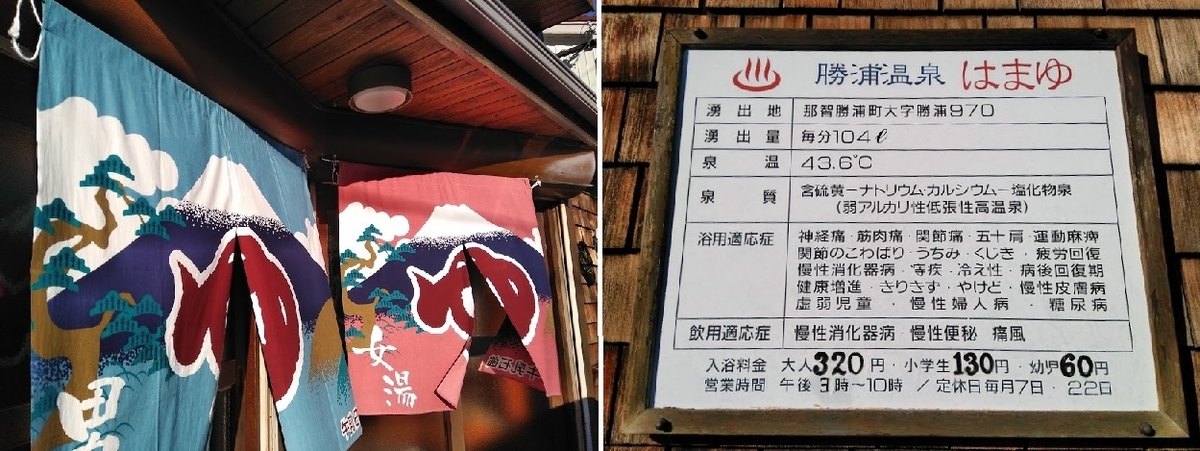 男
女湯
♨ 勝浦温泉 はまゆ
湧出地 那智勝浦町大字勝浦970
湧出量 毎分104ℓ
泉温 43.6℃
泉質 含硫黄ーナトリウム・カルシウムー塩化物泉
(弱アルカリ性低張性高温泉)
浴用適応症 神経痛・筋肉痛・関節痛・五十肩・運動麻痺
関節のこわばり・うちみ・くじき・疲労回復
慢性消化器病・等疾・冷え性・病後回復期
健康増進・きりきず・やけど・慢性皮膚病
虚弱児童・慢性婦人病・糖尿病
飲用適応症 慢性消化器病 慢性便秘 痛風
入浴料金 大人320円・小学生130円・幼児60円
営業時間 午後3時〜10時 / 定休日毎月7日・22日